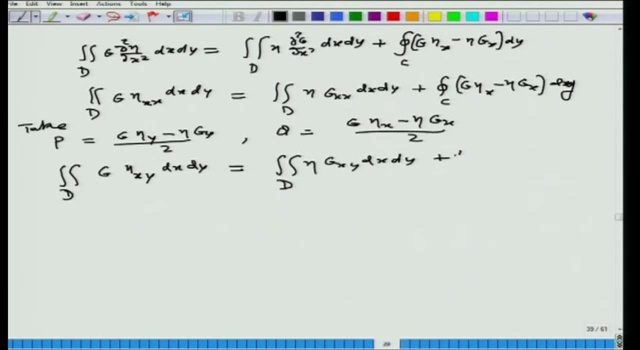 File Edit View Insert Actions Tools Help
∬_D G ∂²η/∂x² dxdy = ∬_D η ∂²G/∂x² dxdy + ∮_C (G η_x − η G_x) dy
∬_D G η_xx dxdy = ∬_D η G_xx dxdy + ∮_C (G η_x − η G_x) dy
Take P = (G η_y − η G_y)/2 , Q = (G η_x − η G_x)/2
∬_D G η_xy dxdy = ∬_D η G_xy dxdy +
39 / 61
39